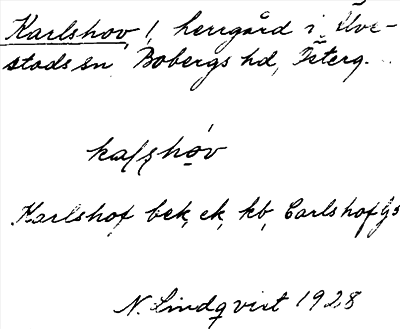 Karlshov, herrgård i Älve-
stads sn, Bobergs hd, Österg.
ka/ʃhov
Karlshof bek, ek, kb, Carlshof Gs
N. Lindqvist 1928